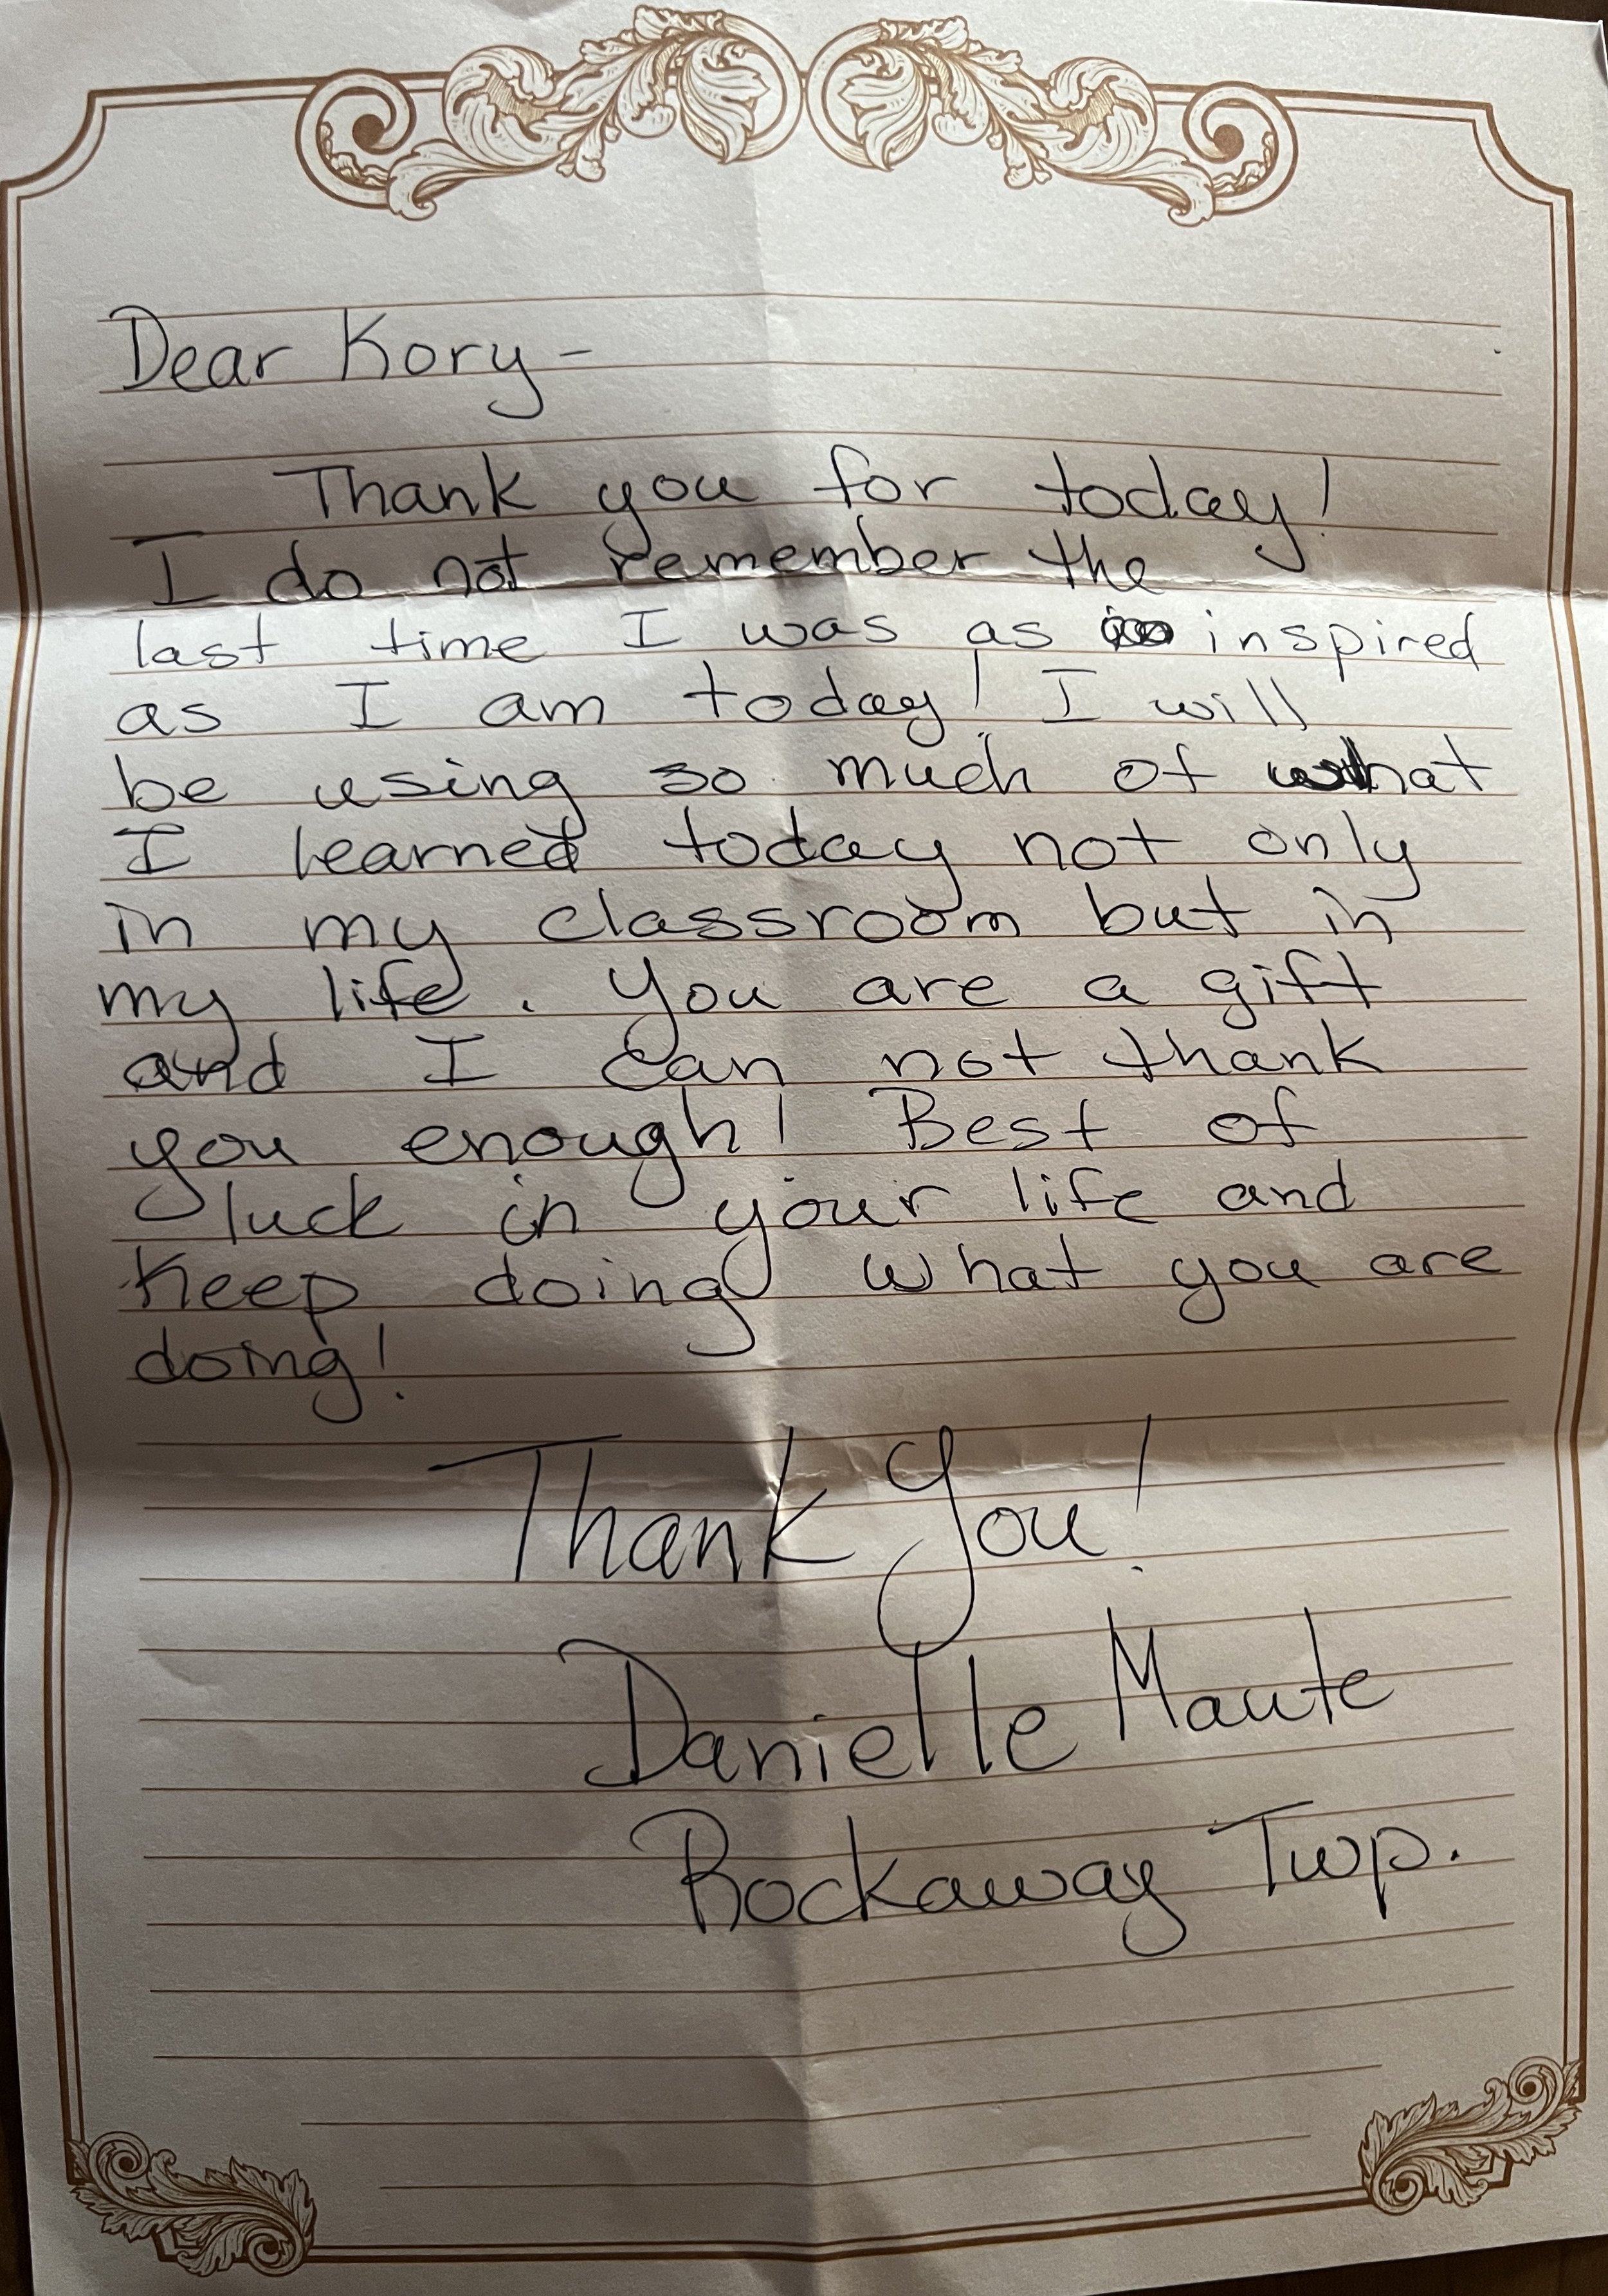 Dear Kory-
Thank you for today!
I do not remember the
last time I was as inspired
as I am today! I will
be using so much of what
I learned today not only
in my classroom but in
my life. You are a gift
and I can not thank
you enough! Best of
luck in your life and
keep doing what you are
doing!
Thank You!
Danielle Maute
Rockaway Twp.